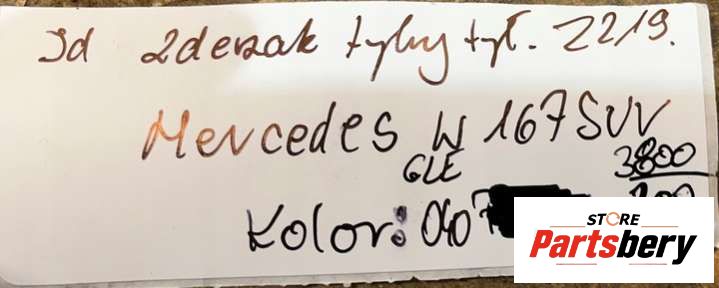 Jd Zderzak tylny tył. 2219.
Mercedes W 167 SUV
GLE 3800
Kolor: 040
STORE
Partsbery